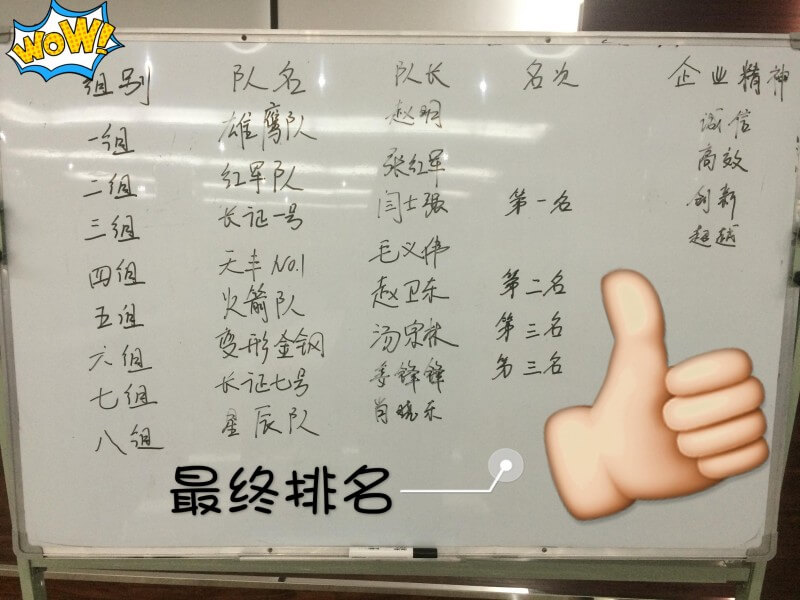 WOW!
组别 队名 队长 名次 企业精神
一组 雄鹰队 赵明 诚信
二组 红军队 张红军 高效
三组 长征一号 闫士强 第一名 创新
四组 天丰 NO.1 毛义伟 超越
五组 火箭队 赵卫东 第二名
六组 变形金钢 汤宗林 第三名
七组 长征七号 李锋锋 第三名
八组 星辰队 肖晓东
最终排名